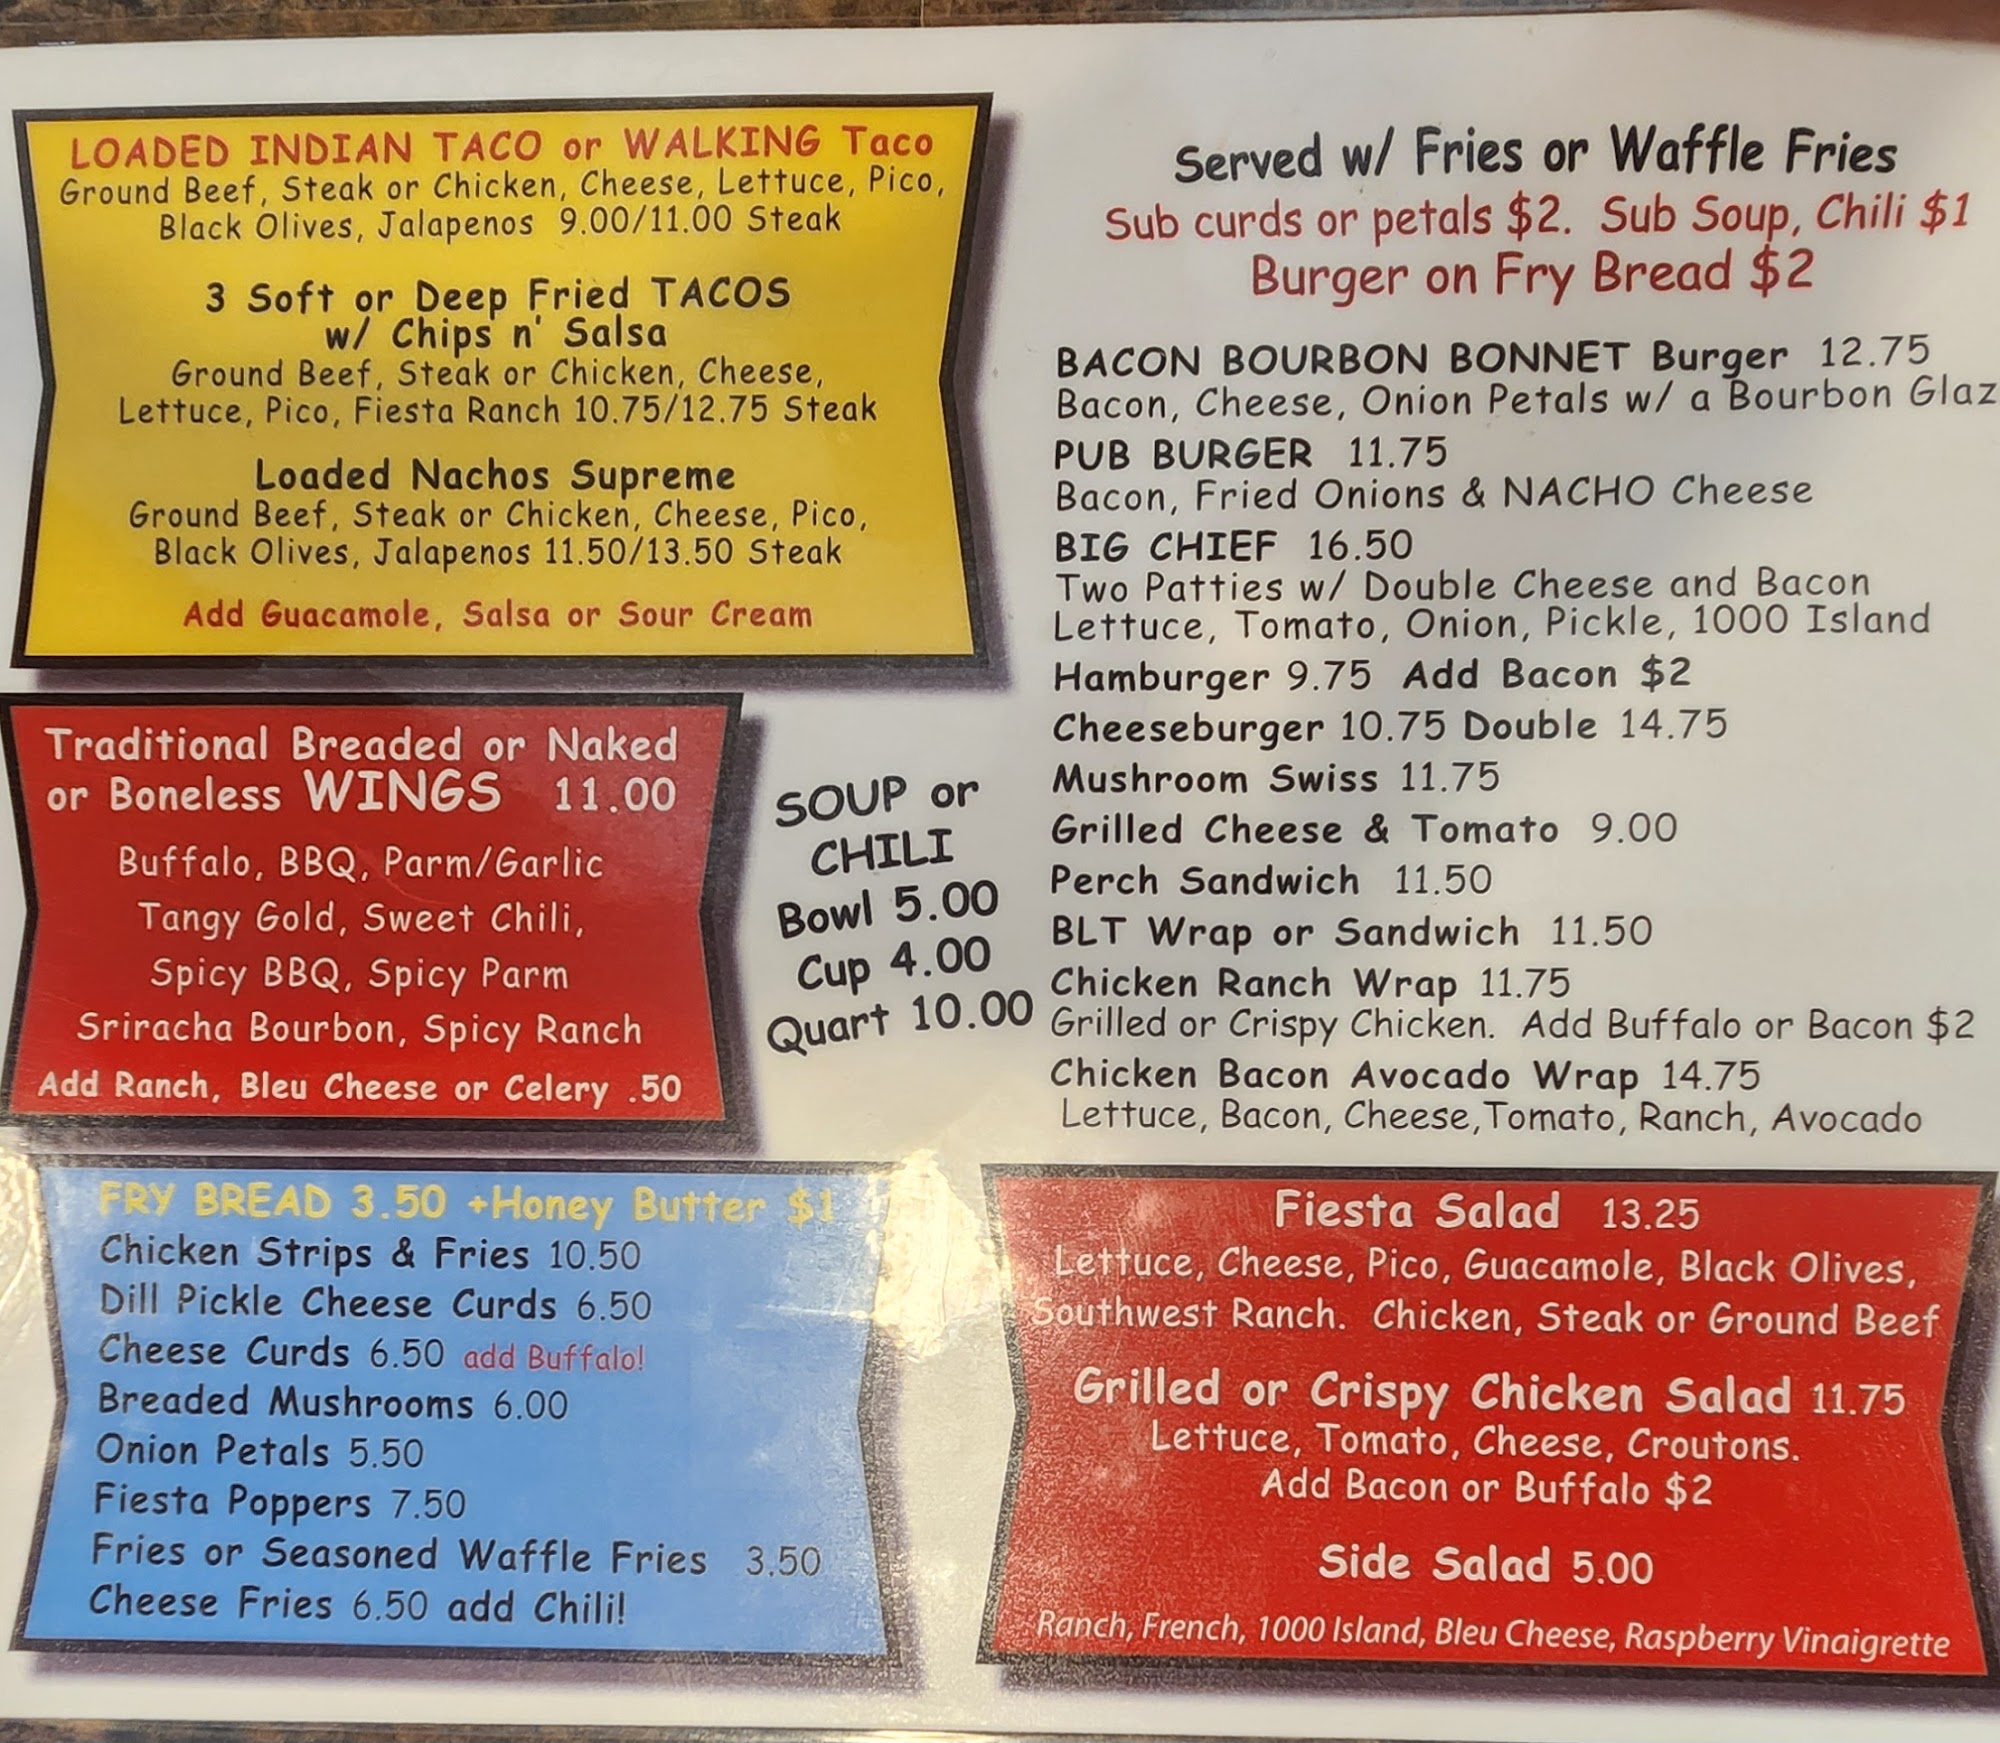 LOADED INDIAN TACO or WALKING Taco
Ground Beef, Steak or Chicken, Cheese, Lettuce, Pico,
Black Olives, Jalapenos 9.00/11.00 Steak
3 Soft or Deep Fried TACOS
w/ Chips n' Salsa
Ground Beef, Steak or Chicken, Cheese,
Lettuce, Pico, Fiesta Ranch 10.75/12.75 Steak
Loaded Nachos Supreme
Ground Beef, Steak or Chicken, Cheese, Pico,
Black Olives, Jalapenos 11.50/13.50 Steak
Add Guacamole, Salsa or Sour Cream
Traditional Breaded or Naked
or Boneless WINGS 11.00
Buffalo, BBQ, Parm/Garlic
Tangy Gold, Sweet Chili,
Spicy BBQ, Spicy Parm
Sriracha Bourbon, Spicy Ranch
Add Ranch, Bleu Cheese or Celery .50
SOUP or
CHILI
Bowl 5.00
Cup 4.00
Quart 10.00
FRY BREAD 3.50 +Honey Butter $1
Chicken Strips & Fries 10.50
Dill Pickle Cheese Curds 6.50
Cheese Curds 6.50 add Buffalo!
Breaded Mushrooms 6.00
Onion Petals 5.50
Fiesta Poppers 7.50
Fries or Seasoned Waffle Fries 3.50
Cheese Fries 6.50 add Chili!
Served w/ Fries or Waffle Fries
Sub curds or petals $2. Sub Soup, Chili $1
Burger on Fry Bread $2
BACON BOURBON BONNET Burger 12.75
Bacon, Cheese, Onion Petals w/ a Bourbon Glaz
PUB BURGER 11.75
Bacon, Fried Onions & NACHO Cheese
BIG CHIEF 16.50
Two Patties w/ Double Cheese and Bacon
Lettuce, Tomato, Onion, Pickle, 1000 Island
Hamburger 9.75 Add Bacon $2
Cheeseburger 10.75 Double 14.75
Mushroom Swiss 11.75
Grilled Cheese & Tomato 9.00
Perch Sandwich 11.50
BLT Wrap or Sandwich 11.50
Chicken Ranch Wrap 11.75
Grilled or Crispy Chicken. Add Buffalo or Bacon $2
Chicken Bacon Avocado Wrap 14.75
Lettuce, Bacon, Cheese,Tomato, Ranch, Avocado
Fiesta Salad 13.25
Lettuce, Cheese, Pico, Guacamole, Black Olives,
Southwest Ranch. Chicken, Steak or Ground Beef
Grilled or Crispy Chicken Salad 11.75
Lettuce, Tomato, Cheese, Croutons.
Add Bacon or Buffalo $2
Side Salad 5.00
Ranch, French, 1000 Island, Bleu Cheese, Raspberry Vinaigrette